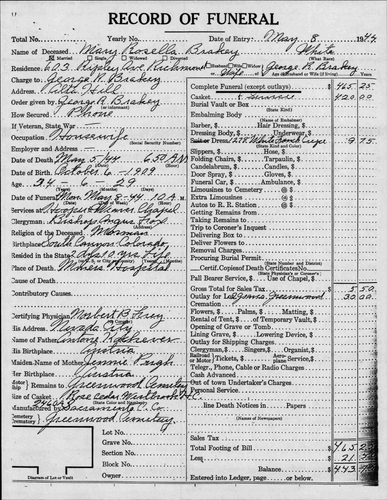 RECORD OF FUNERAL
Total No.
Yearly No.
Date of Entry May 8, 1944
Name of Deceased Mary Rosella Brakey White
Married Widowed Divorced (What Race)
Residence 603 Ripley Ave Richmond Wife of George R. Brakey
Charge to George R. Brakey
Address Alta Hill
Order given by George R. Brakey
(or informant)
How Secured Phone
If Veteran, State War
Occupation Housewife
(Social Security Number)
Employer and Address
Date of Death May 5/44 6:50 A.M.
Date of Birth October 6 - 1909
Age 34 - 6 - 29
Date of Funeral May 9-44 10 A.M.
Services at Hooper & Weaver Chapel
Clergyman Bishop Angus Fox
Religion of the Deceased Mormon
Birthplace South Canyon Colorado
Resided in the State
Place of Death Miners Hospital
Cause of Death
Contributory Causes
Certifying Physician
His Address Nevada City
Name of Father
His Birthplace Austria
Maiden Name of Mother
Her Birthplace Austria
Remains to Greenwood Cemetery
Size of Casket
Manufactured by Sacramento C. Co.
Cemetery Greenwood Cemetery
Lot No.
Grave No.
Section No.
Block No.
Owner
Diagram of Lot or Vault
Complete Funeral (except outlays) $ 465.25
Casket 420.00
Burial Vault or Box
(State Kind)
Embalming Body
Barber, $ Hair Dressing, $
Dressing Body, $ Underwear, $
Dress 9.75
(State Kind and Color)
Slippers, $ Hose, $
Folding Chairs, $ Tarpaulin, $
Candelabrum, $ Candles, $
Door Spray, $ Gloves, $
Funeral Car, $ Ambulance, $
Limousines to Cemetery @ $
Extra Limousines @ $
Autos to R. R. Station @ $
Getting Remains from
Taking Remains to
Trip to Coroner's Inquest
Delivering Box to
Deliver Flowers to
Removal Charges
Procuring Burial Permit
(State Number and District)
Certif. Copies of Death Certificates No.
(State Physician's or Coroner's)
Pall Bearer Service, $ Use of Chapel, $
Gross Total for Sales Tax $ 5.50
Outlay for Lot Greenwood 30.00
Cremation
Flowers, $ Palms, $ Matting, $
Rental of Tent, $ of Temporary Vault, $
Opening of Grave or Tomb
Lining Grave, $ Lowering Device, $
Outlay for Shipping Charges
Clergyman, $ Singers, $ Organist, $
Tickets, $ Aero Service, $
Telegr., Phone, Cable or Radio Charges
Cash Advanced
Out of town Undertaker's Charges
Personal Service
line Death Notices in Papers
(Names of Newspapers)
Sales Tax
Total Footing of Bill $ 465.25
Less
Balance $
Entered into Ledger, page or below.